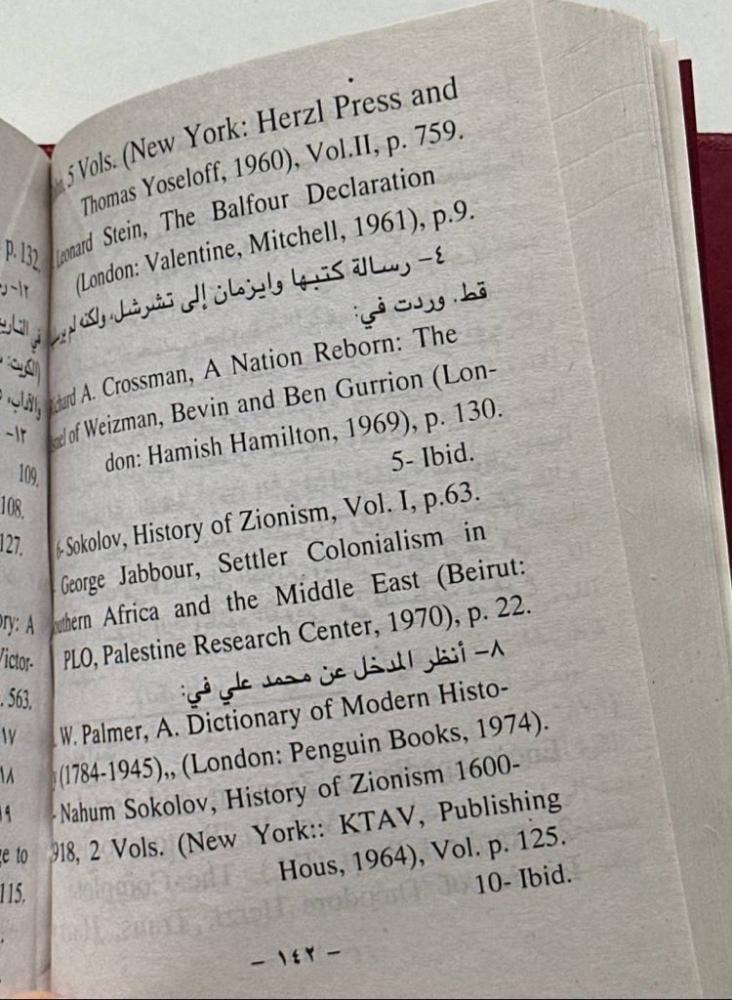 5 Vols. (New York: Herzl Press and
Thomas Yoseloff, 1960), Vol.II, p. 759.
Leonard Stein, The Balfour Declaration
(London: Valentine, Mitchell, 1961), p.9.
٤– رسالة كتبها وايزمان إلى تشرشل، ولكنه لم
قط. وردت في:
A. Crossman, A Nation Reborn: The
of Weizman, Bevin and Ben Gurrion (Lon-
don: Hamish Hamilton, 1969), p. 130.
5- Ibid.
6- Sokolov, History of Zionism, Vol. I, p.63.
George Jabbour, Settler Colonialism in
Africa and the Middle East (Beirut:
PLO, Palestine Research Center, 1970), p. 22.
٨– أنظر المدخل عن محمد علي في:
W. Palmer, A. Dictionary of Modern Histo-
(1784-1945),, (London: Penguin Books, 1974).
Nahum Sokolov, History of Zionism 1600-
918, 2 Vols. (New York:: KTAV, Publishing
Hous, 1964), Vol. p. 125.
10- Ibid.
– ١٤٢ –
p. 132.
١٢–
في
١٣–
109.
108.
127.
A
563.
١٧
١٨
to
115.